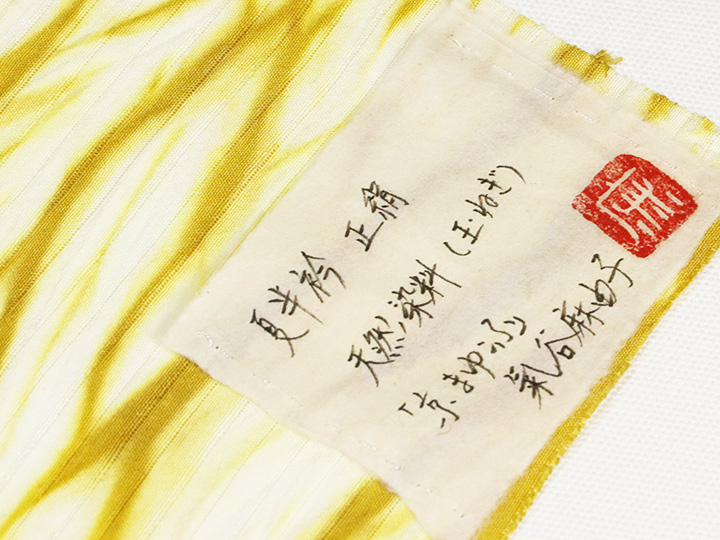 夏半衿 正絹
天然染料(玉ねぎ)
「京まゆふ」
氣谷麻由子
麻